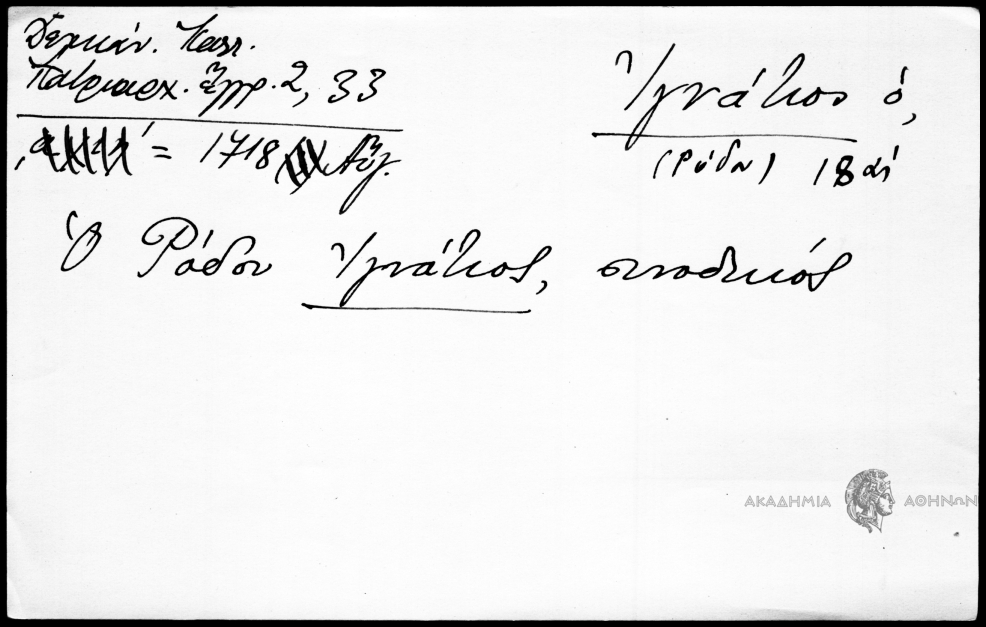 Δελικάν. Καλλ.
Πατριαρχ. Ἔγγρ. 2, 33
= 1718 Αὔγ.
Ἰγνάτιος ὁ,
(Ρόδου) 18 αἰ
Ὁ Ρόδου Ἰγνάτιος, συνοδικός
ΑΚΑΔΗΜΙΑ ΑΘΗΝΩΝ